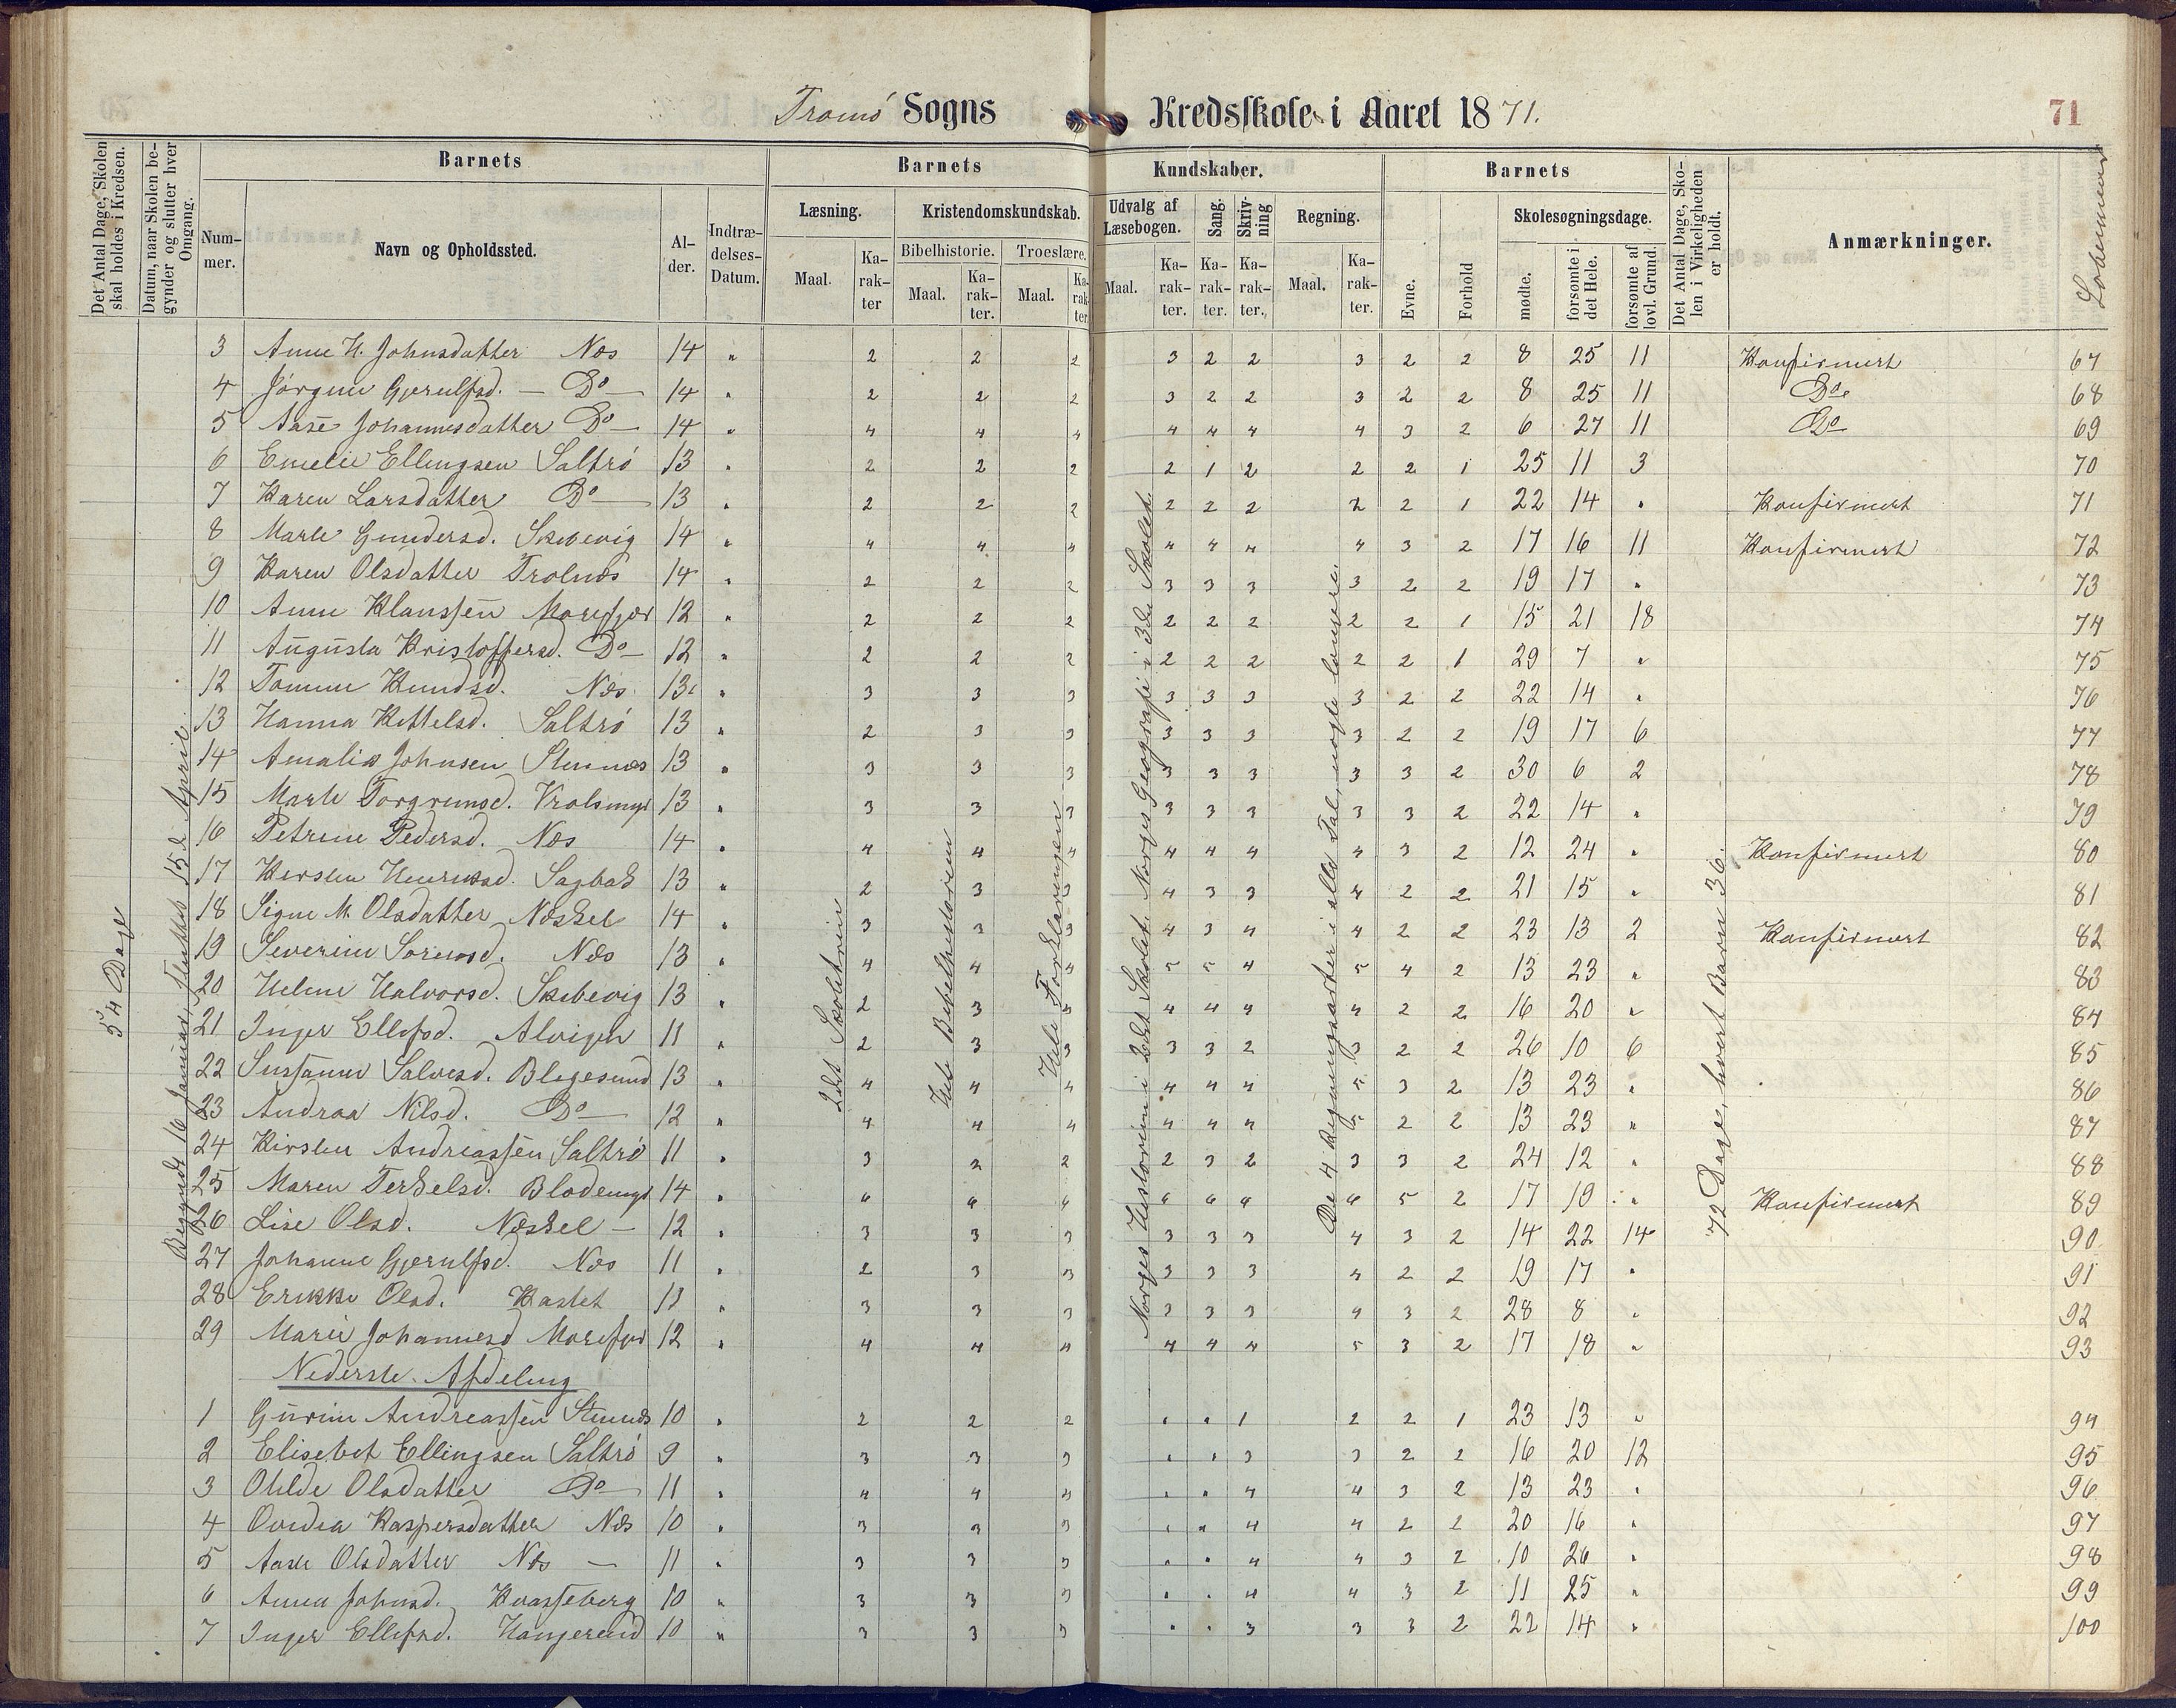 Tromø Sogns Kredsskole i Aaret 1871.
71
Det Antal Dage, Skolen skal holdes i Kredsen.
Datum, naar Skolen begynder og slutter hver Omgang.
Barnets
Barnets
Kundskaber.
Barnets
Det Antal Dage, Skolen i Virkeligheden er holdt.
Anmærkninger.
Løbenummer
Nummer.
Navn og Opholdssted.
Alder.
Indtrædelses-Datum.
Læsning.
Kristendomskundskab.
Udvalg af Læsebogen.
Sang.
Skrivning
Regning.
Evne.
Forhold
Skolesøgningsdage.
Bibelhistorie.
Troeslære.
Maal.
Karakter
Maal.
Karakter.
Maal.
Karakter.
Maal.
Karakter.
Karakter.
Karakter.
Maal.
Karakter.
mødte.
forsømte i det Hele.
forsømte af lovl. Grund.
54 Dage
Begyndt 16 Januar, Sluttet 15de April
2det Skoletrin
Hele Bibelhistorien
Hele Forklaringen
Norges Historien i 2det Skolet. Norges Geografi i 3die Skolet
De 4 Regningsarter i alle Tal, nogle lengere.
72 Dage, hvert Barn 36.
3 Anne H. Johnsdatter Næs 14 " 2 2 2 3 2 2 3 2 2 8 25 11 Konfirmert 67
4 Jørgine Gjerulfsd. — Do — 14 " 2 2 2 3 2 2 3 2 2 8 25 11 Do 68
5 Aase Johannesdatter Do — 14 " 4 4 4 4 4 4 4 3 2 6 27 11 Do 69
6 Emelie Ellingsen Saltrø 13 " 2 2 2 2 1 2 2 2 1 25 11 3 70
7 Karen Larsdatter Do — 13 " 2 2 2 2 2 2 2 2 1 22 14 " Konfirmert 71
8 Marte Gundersd. Skibevig 14 " 4 4 4 4 4 4 4 3 2 17 16 11 Konfirmert 72
9 Karen Olsdatter Trolnæs 14 " 2 2 2 3 3 3 3 2 2 19 17 " 73
10 Anne Klaussen Morefjær 12 " 2 2 2 2 2 2 2 2 1 15 21 18 74
11 Augusta Kristoffersd. Do — 12 " 2 2 2 2 2 2 2 2 1 29 7 " 75
12 Tomine Knudsd. Næs 13 " 3 3 3 3 3 3 3 2 2 22 14 " 76
13 Hanna Kittelsd. Saltrø 13 " 2 3 3 3 3 3 3 2 2 19 17 6 77
14 Amalie Johnsen Stennæs 13 " 3 3 3 3 3 3 3 3 2 30 6 2 78
15 Marte Torgrimsd. 13 " 3 3 3 3 3 3 3 3 2 22 14 " 79
16 Petrine Pedersd. Næs 14 " 4 4 4 4 4 4 4 3 2 12 24 " Konfirmert 80
17 Kersten Henriksd. 13 " 2 3 3 4 3 3 4 2 2 21 15 " 81
18 Signe M. Olsdatter Næskel 14 " 3 3 3 4 3 4 4 2 2 23 13 2 Konfirmert 82
19 Severine Sørensd. Næs 13 " 4 4 4 5 5 4 5 4 2 13 23 " 83
20 Heline Halvorsd. Skibevig 13 " 2 3 4 4 4 4 2 2 16 20 " 84
21 Inger Ellefsd. Alvigen 11 " 2 3 3 3 3 2 3 2 2 26 10 6 85
22 Susanne Salvesd. Blegesund 13 " 4 4 4 4 4 4 5 3 2 13 23 " 86
23 Andrea Nilsd. Do — 12 " 4 4 4 4 4 4 5 2 2 13 23 " 87
24 Kirsten Andreassen Saltrø 11 " 3 2 2 2 3 2 3 3 2 24 12 " 88
25 Maren Terkelsd. 14 " 6 6 6 6 6 6 6 5 2 17 19 " Konfirmert 89
26 Lise Olsd. Næskel — 12 " 3 3 3 3 3 3 4 3 2 14 22 14 90
27 Johanne Gjerulfsd. Næs 11 " 2 3 3 3 3 3 4 2 2 19 17 " 91
28 Erikke Olsd. Kastet 11 " 3 3 3 3 3 3 4 3 2 28 8 " 92
29 Marie Johannesd Morefjær 12 " 4 4 4 4 4 4 5 3 2 17 18 " 93
Nederste Afdeling
1 Gurine Andreassen Stennæs 10 " 2 2 2 " " 1 2 2 1 23 13 " 94
2 Elisebet Ellingsen Saltrø 9 " 3 3 3 " " 3 3 2 2 16 20 12 95
3 Otilde Olsdatter Do — 11 " 4 4 4 " " 4 4 3 2 13 23 " 96
4 Ovidia Kaspersdatter Næs 10 " 3 3 3 " " 4 4 2 2 20 16 " 97
5 Aase Olsdatter Næs — 11 " 3 3 3 " " 4 4 3 2 10 26 " 98
6 Anna Johnsd. Kvasseberg 10 " 3 3 3 " " 4 4 3 2 11 25 " 99
7 Inger Ellefsd. 10 " 3 3 3 " " 3 3 3 2 22 14 " 100